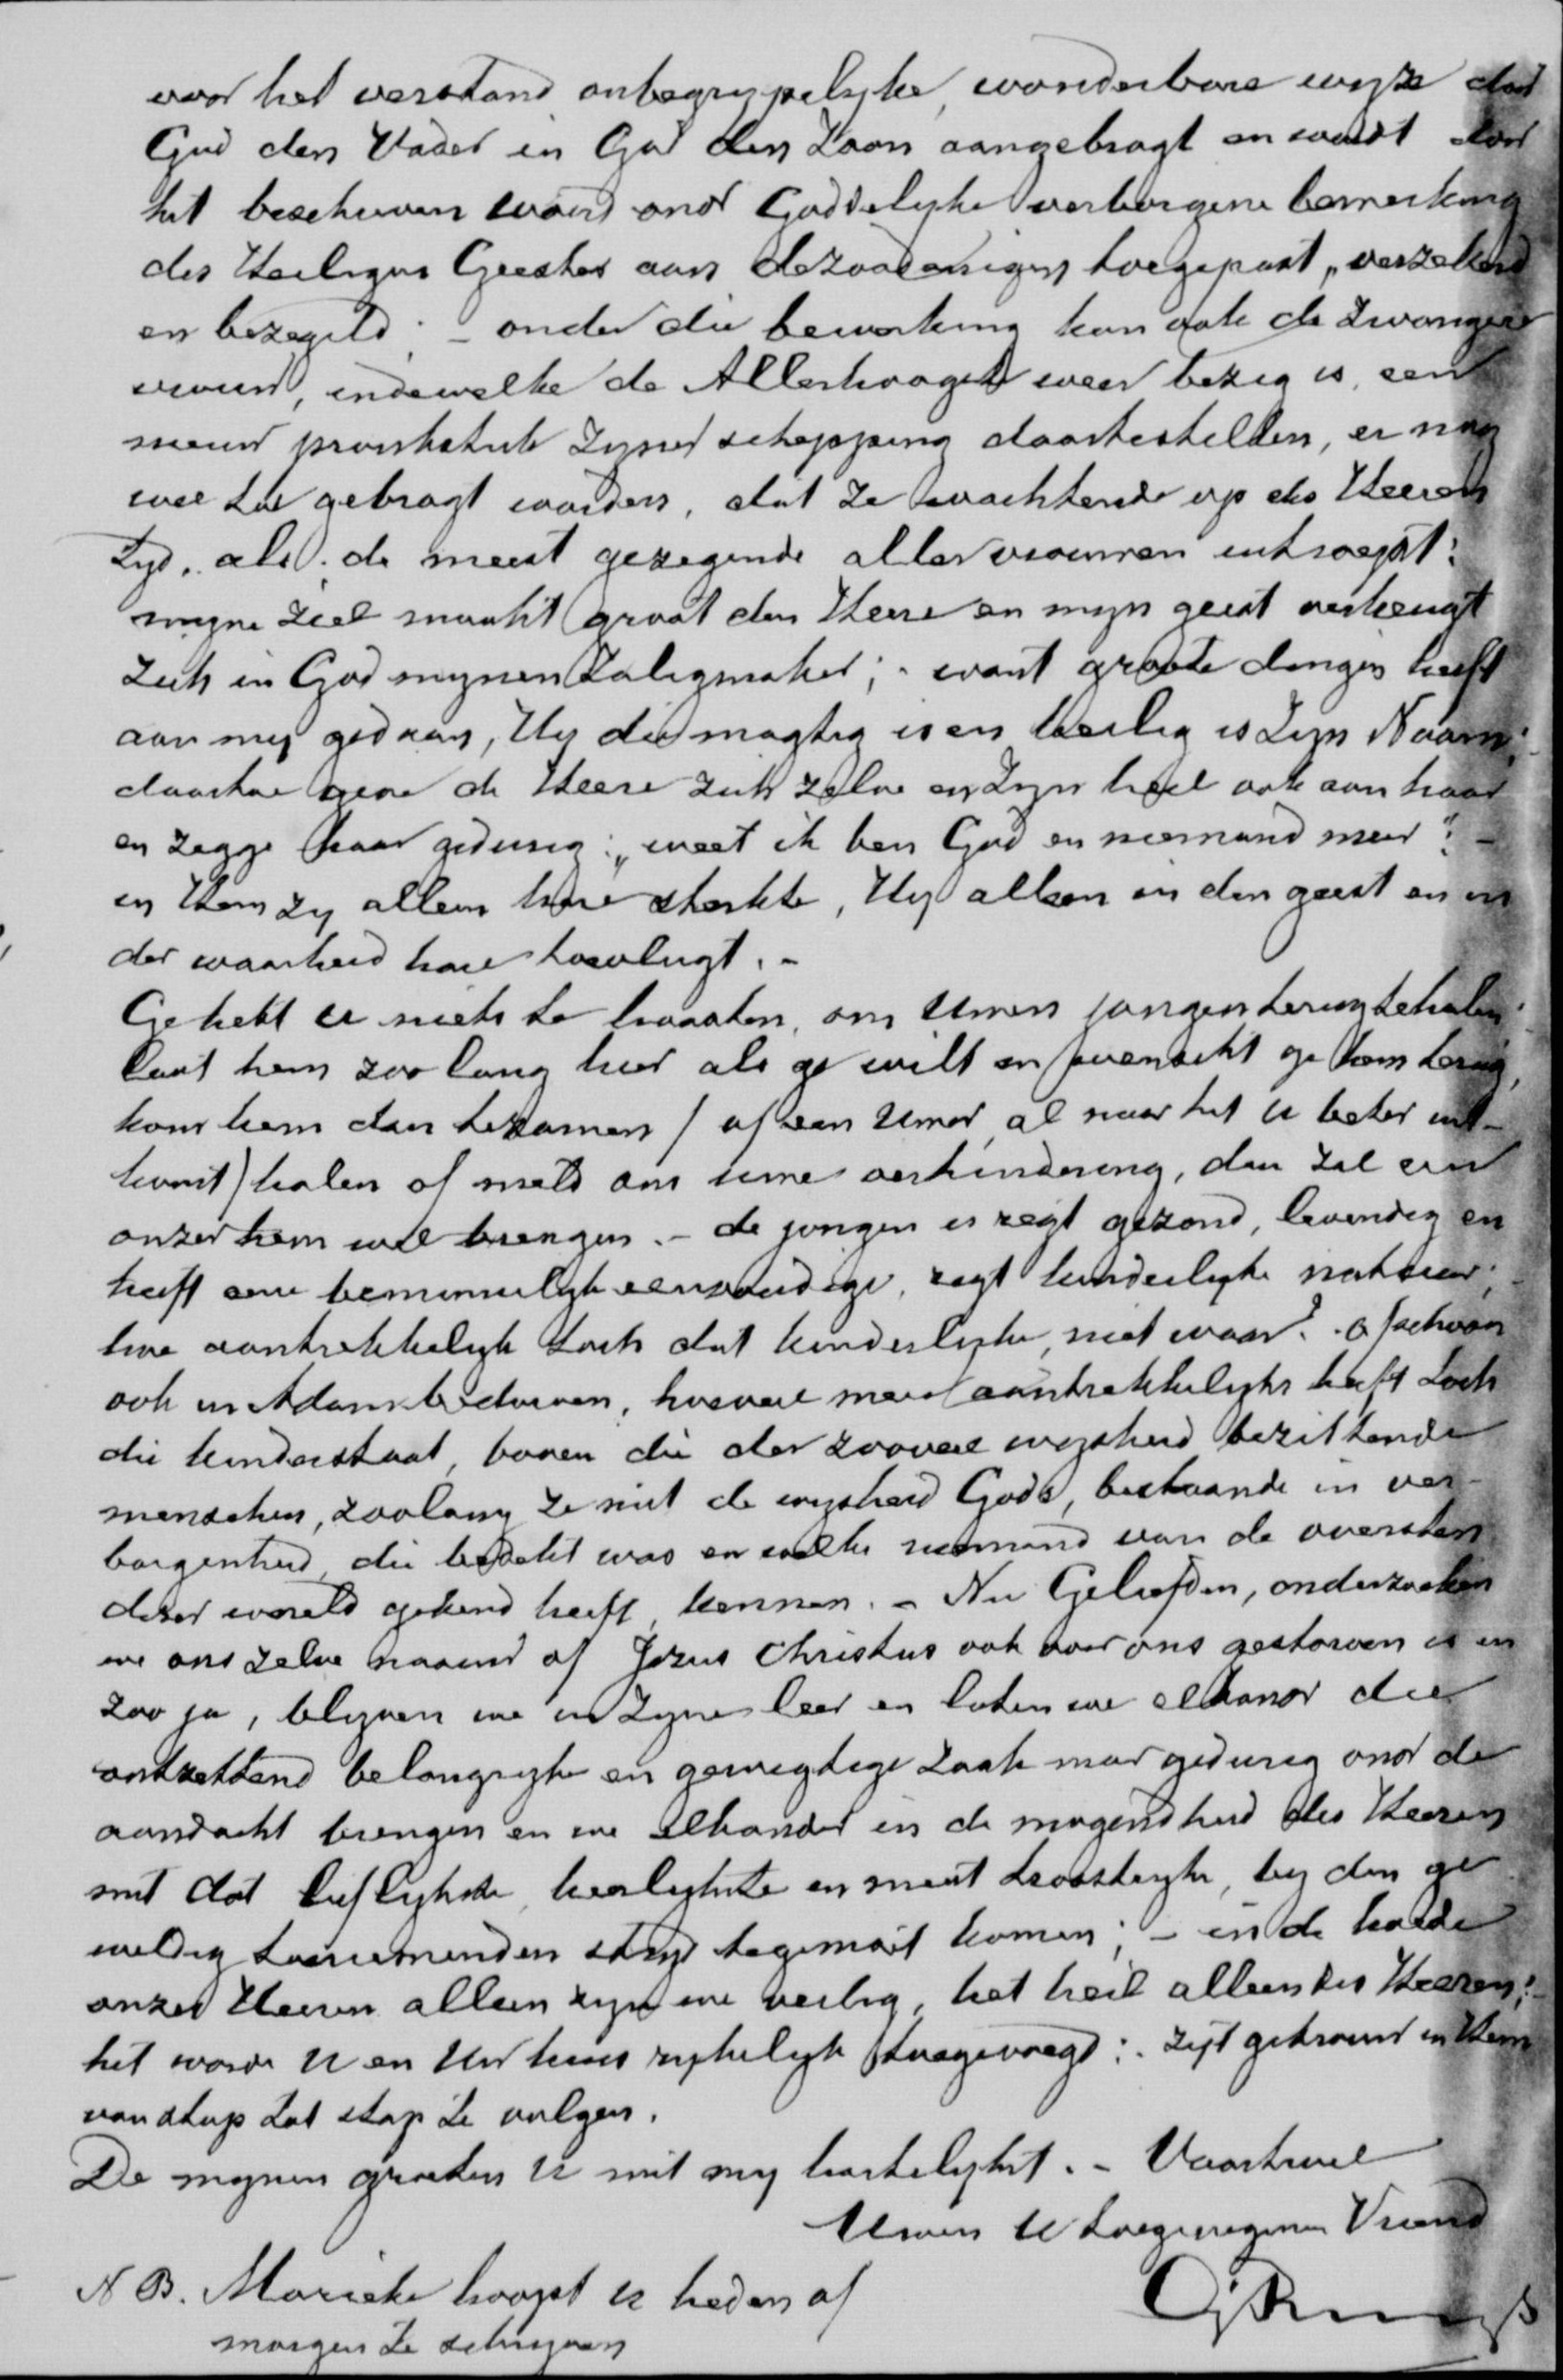 voor het verstand onbegrypelyke, wonderbare wyze door
God den Vader in God den Zoon aangebragt en wordt door
het beschreven woord ondr Goddelyke verborgene bewerking
des Heiligen Geestes aan dezoodanigen toegepast, verzekerd
en bezegeld; – onder die bewerking kan ook de zwangere
vrouw, indewelke de Allerhoogste weer bezig is, een
nieuw pronkstuk Zyner schepping daartestellen, er nog
wel toe gebragt worden, dat ze wachtende op des Heeren
tyd, als de meest gezegende aller vrouwen uitroept:
myne ziel maakt groot den Heere en myn geest verheugt
zich in God mynen Zaligmaker; – want groote dingen heeft
aan my gedaan, Hy die magtig is en heilig is Zyn Naam;
daartoe geve de Heere zich zelve en Zyn heil ook aan haar
en zegge haar gedurig: „weet ik ben God en niemand meer": –
in Hem zy alleen hare sterkte, Hy alleen in den geest en in
der waarheid hare toevlugt. –
Ge hebt u niets te haasten, om Uwen jongen terugtehalen;
laat hem zoo lang hier als ge wilt en wenscht ge hem terug,
kom hem dan tezamen / of een Uwer, al naar het U beter uit-
komt) halen of meld ons uwe verhindering, dan zal een
onzer hem wel brengen. – de jongen is regt gezond, levendig en
heeft eene beminnelyk eenvoudige, regt kinderlyke natuur;
hoe aantrekkelyk toch dat kinderlyke, niet waar? ofschoon
ook in Adam bedorven, hoeveel meer aantrekkelyks heeft toch
die kinderstaat, boven die der zooveel wysheid bezittende
menschen, zoolang ze niet de wysheid Gods, bestaande in ver-
borgenheid, die bedekt was en welke niemand van de oversten
dezer wereld gekend heeft, kennen. – Nu Geliefden, onderzoeken
we ons zelve naauw of Jezus Christus ook voor ons gestorven is en
zoo ja, blyven we in Zyne leer en laten we elkander die
ontzettend belangryke en gewigtige zaak maar gedurig ondr de
aandacht brengen en we elkander in de mogendheid des Heeren
met dat lieflykste, heerlykste en meest troostryke, by den ge
weldig toenemenden stryd tegemoet komen; – in de hoede
onzes Heeren alleen zyn we veilig, het heil alleen des Heeren;
het worde U en Uw huis rykelyk toegevoegd: – zyt getrouw in Hem
van stap tot stap te volgen.
De mynen groeten U met my hartelykst. – Vaartwel
Uwen U toegenegenen Vriend
N B. Marieke hoopt U heden of
morgen te schryven